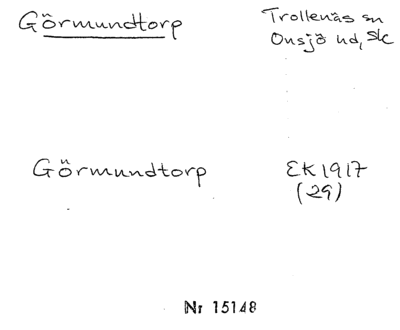 Görmundtorp
Trollenäs sn
Onsjö hd, Sk
Görmundtorp
EK 1917
(29)
Nr 15148